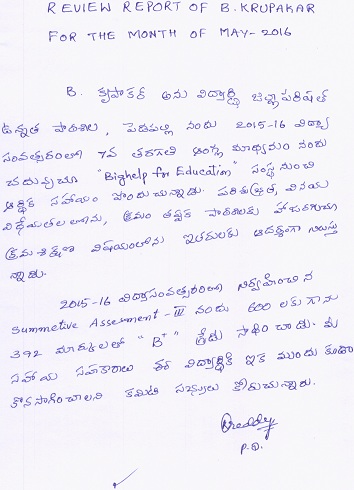 REVIEW REPORT OF B. KRUPAKAR
FOR THE MONTH OF MAY-2016
B. కృపాకర్ అను విద్యార్థి జిల్లా పరిషత్
ఉన్నత పాఠశాల, పెదపల్లి నందు 2015-16 విద్యా
సంవత్సరంలో 7వ తరగతి ఆంగ్ల మాధ్యమం నందు
చదువుచూ "Bighelp for Education" సంస్థ నుంచి
ఆర్థిక సహాయం పొందుచున్నాడు. పరిశుభ్రత, వినయ
విధేయతలలోను, క్రమం తప్పక పాఠశాలకు హాజరగుచూ
క్రమశిక్షణ విషయంలోను ఇతరులకు ఆదర్శంగా నిలుస్తు
న్నాడు.
2015-16 విద్యాసంవత్సరంలో నిర్వహించిన
Summetive Assesment - III నందు 600 లకు గాను
392 మార్కులతో "B+" గ్రేడు సాధించాడు. మీ
సహాయ సహకారాలు ఈ విద్యార్థికి ఇక ముందు కూడా
కొనసాగించాలని కమిటి సభ్యులు కోరుచున్నారు.
Reddy
P.D.